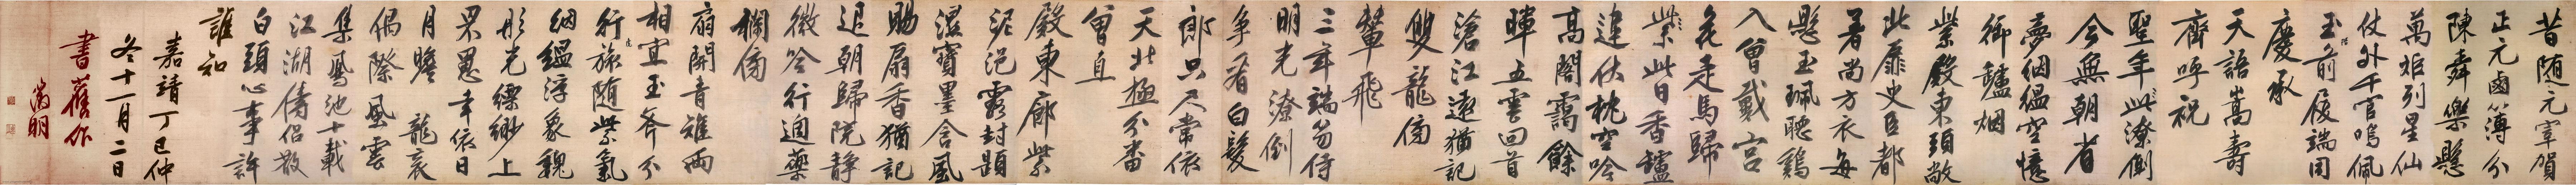 昔随元宰賀
正元鹵簿分
陳舜樂懸
萬炬列星仙
仗外千官鳴佩
玉前履端同
慶承
天語嵩壽
齊呼祝
聖年此潦倒
今無朝省
夢絪縕空憶
御鑪烟
紫殿東頭敞
北扉史臣都
著尚方衣每
懸玉珮聽鷄
入曾戴宮
花走馬歸
紫此日香鑪
違伏枕空吟
高閣靄餘
暉五雲回首
滄江遠猶記
雙龍傍
輦飛
三年端笏侍
明光潦倒
爭看白髮
郎只尺常依
天北極分番
曾直
殿東廊紫
泥浥露封題
濕寶墨含風
賜扇香猶記
退朝歸院靜
微吟行遶藥
欄傍
扇開青雉兩
相宜玉斧分
行旅随紫氣
絪縕浮象魏
彤光縹緲上
罘罳幸依日
月瞻龍衮
偶際風雲
集鳳池十載
江湖儔侶散
白頭心事許
誰知
嘉靖丁巳仲
冬十一月二日
書舊作
徵明